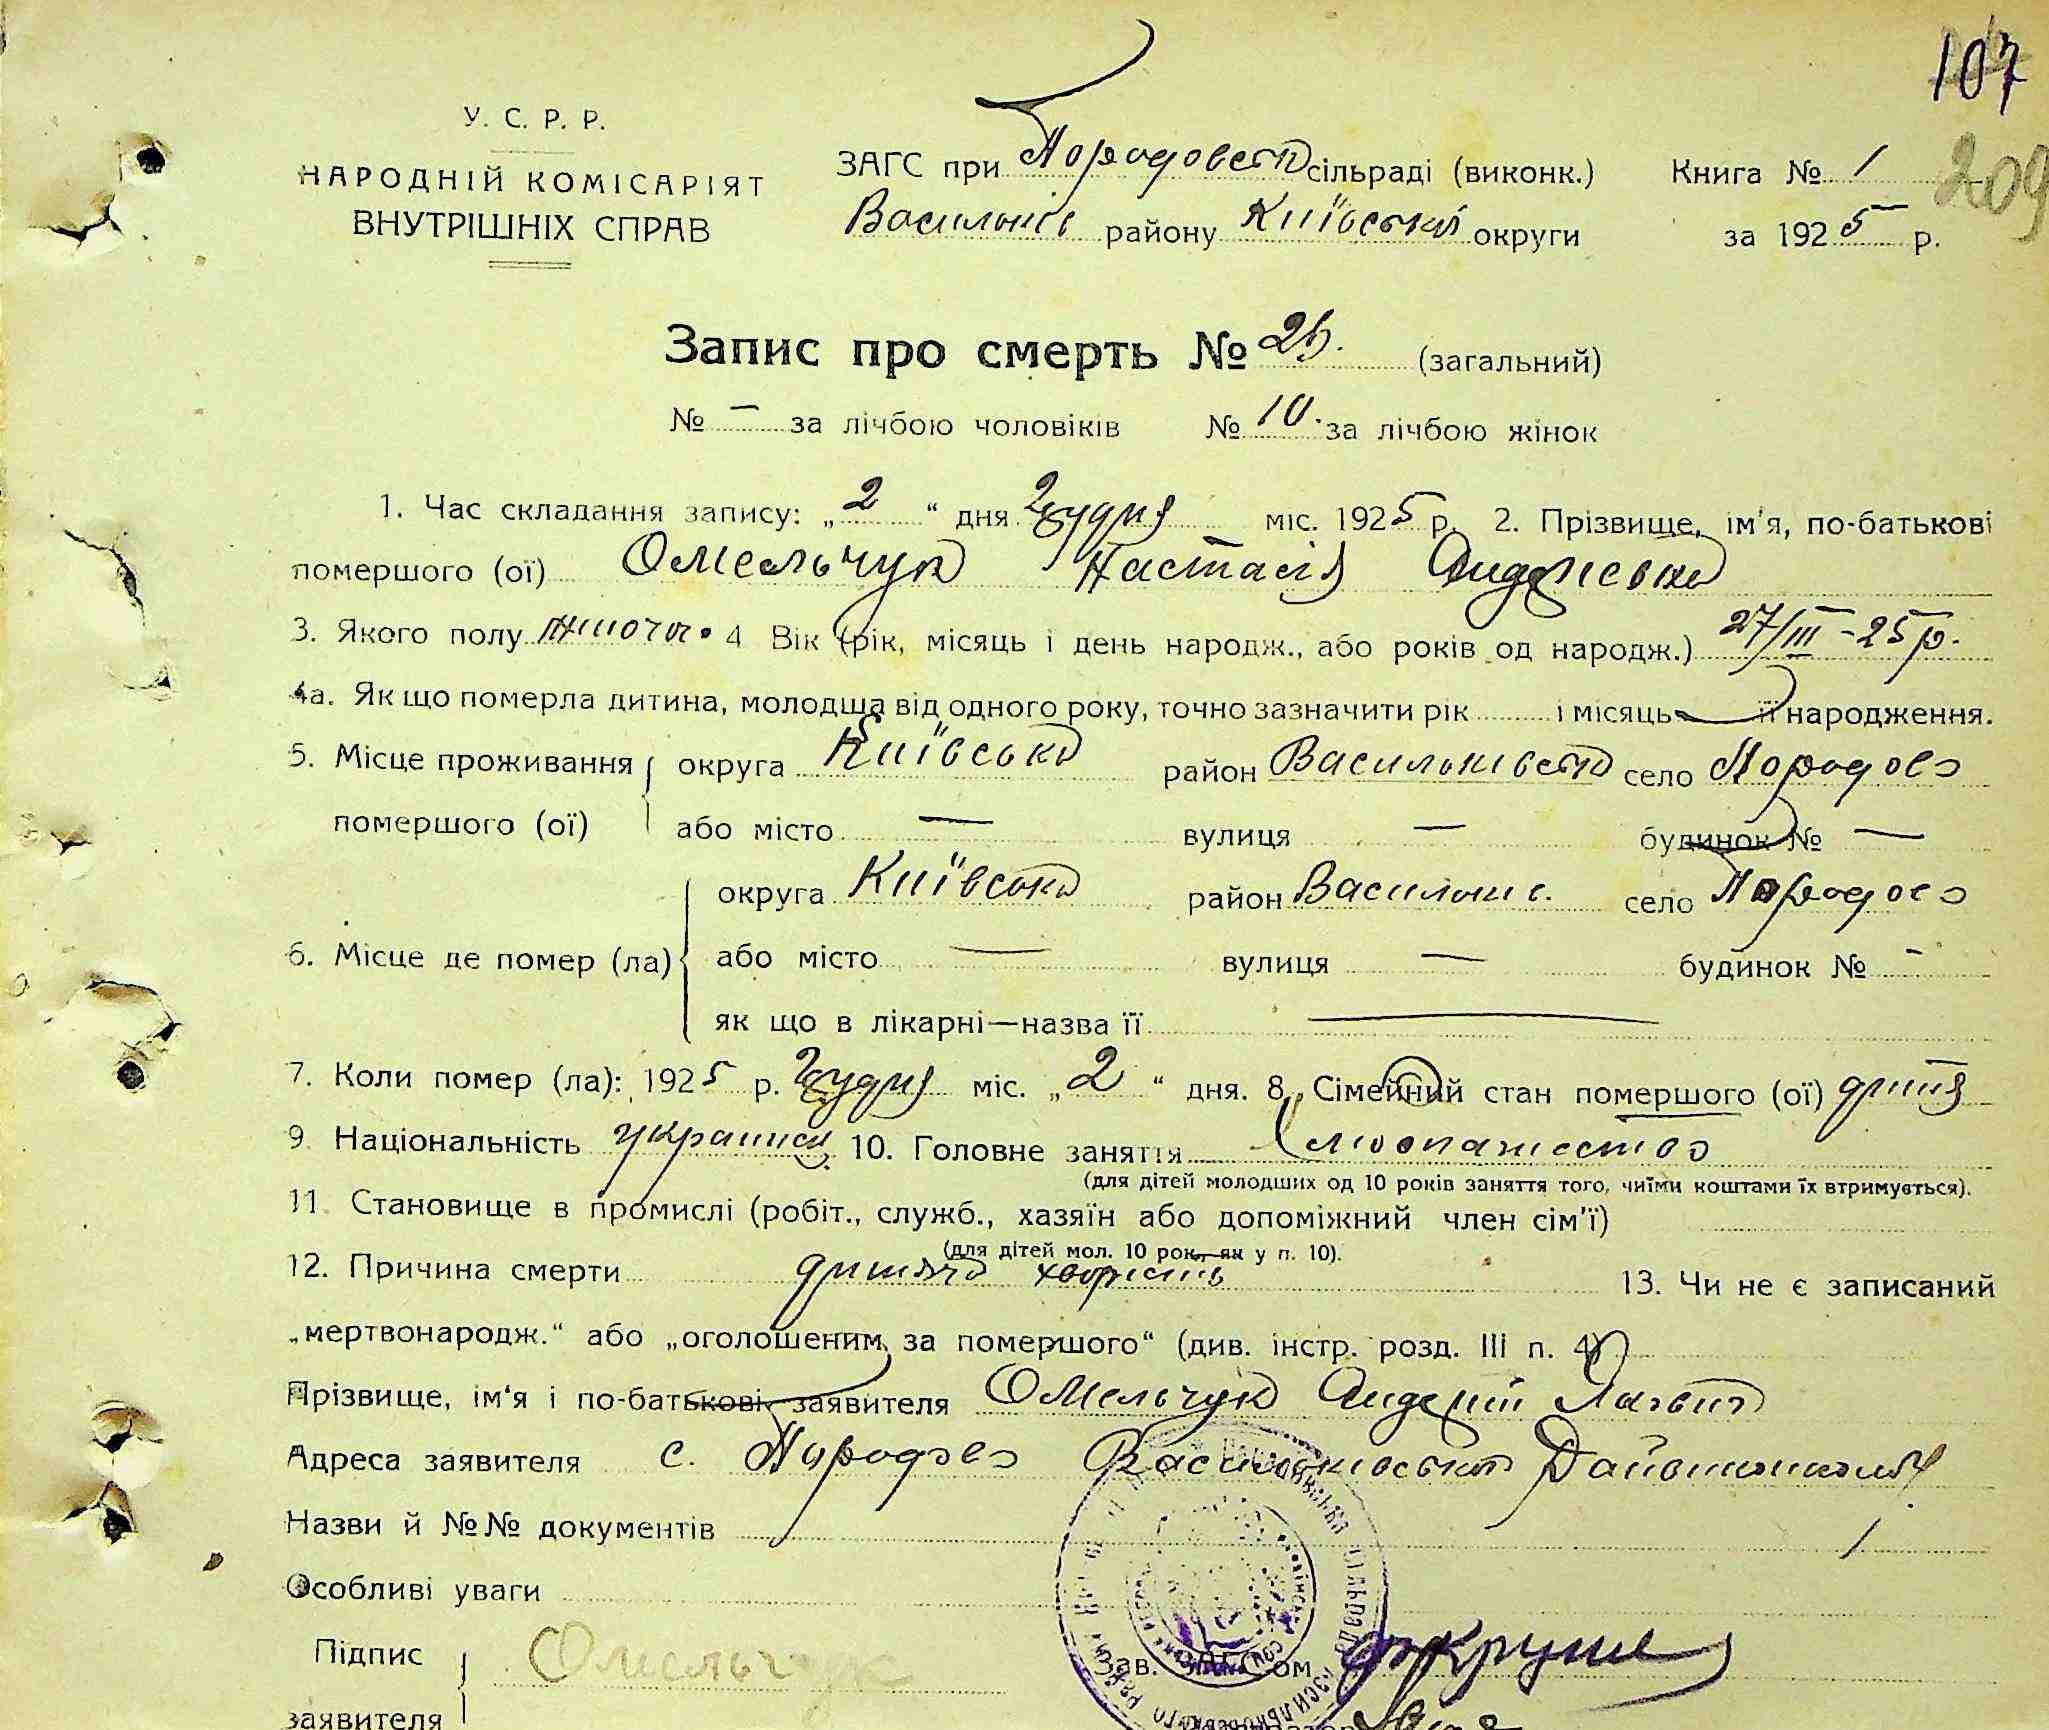 107
209
У. С. Р. Р.
НАРОДНІЙ КОМІСАРІЯТ
ВНУТРІШНІХ СПРАВ
ЗАГС при сільраді (виконк.) Книга № 1
Васильків району Київської округи за 1925 р.
Запис про смерть № 25. (загальний)
№ — за лічбою чоловіків № 10. за лічбою жінок
1. Час складання запису: „2“ дня Грудня міс. 1925 р. 2. Прізвище, ім'я, по-батькові
помершого (ої) Омельчук Настасія Андреевна
3. Якого полу жіночог. 4 Вік (рік, місяць і день народж., або років од народж.) 27/III-25 р.
4а. Як що померла дитина, молодща від одного року, точно зазначити рік і місяць її народження.
5. Місце проживання округа Київська район Васильківськ село
помершого (ої) або місто — вулиця — будинок № —
округа Київська район Васильків. село
6. Місце де помер (ла) або місто — вулиця — будинок № -
як що в лікарні—назва її —
7. Коли помер (ла): 1925 р. Грудня міс. „2“ дня. 8. Сімейний стан помершого (ої) дитя
9. Національність 10. Головне заняття
(для дітей молодших од 10 років заняття того, чиїми коштами їх втримується).
11. Становище в промислі (робіт., служб., хазяїн або допоміжний член сім'ї)
(для дітей мол. 10 рок., як у п. 10).
12. Причина смерти дитяча хворість 13. Чи не є записаний
„мертвонародж.“ або „оголошеним за помершого“ (див. інстр. розд. III п. 4)
Прізвище, ім'я і по-батькові заявителя Омельчук Андрей
Адреса заявителя с. Васильківськ
Назви й №№ документів
Особливі уваги
Підпис Омельчук Зав. ЗАГС'ом
заявителя